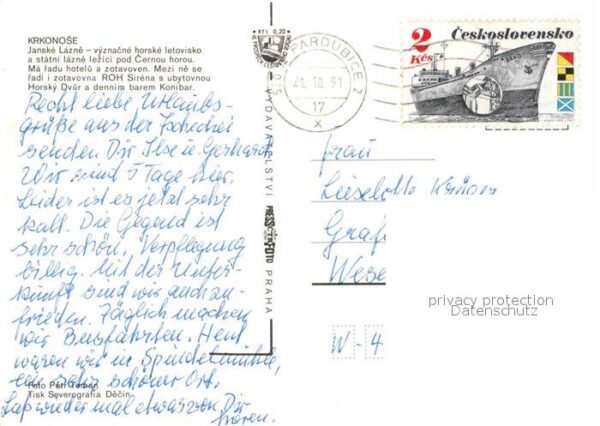 KRKONOŠE
Janské Lázně – význačné horské letovisko
a státní lázně ležící pod Černou horou.
Má řadu hotelů a zotavoven. Mezi ně se
řadí i zotavovna ROH Siréna s ubytovnou
Horský Dvůr a denním barem Konibar.
Recht liebe Urlaubs-
grüße aus der Tschechei
senden Dir Ilse u. Gerhard.
Wir sind 5 Tage hier.
Leider ist es jetzt sehr
kalt. Die Gegend ist
sehr schön, Verpflegung
billig. Mit der Unter-
kunft sind wir auch zu-
frieden. Täglich machen
wir Busfahrten. Heut
waren wir in Spindelmühle,
ein sehr schöner Ort.
Lap wieder mal etwas von Dir
hören.
Foto Petr Toman
Tisk Severografia Děčín
Kčs 0,20
VYDAVATELSTVÍ
PRESSFOTO
PRAHA
PARDUBICE 2
21.10.91
17
X
2
Kčs
Československo
Frau
Lieselotte
Graf
Wese
privacy protection
Datenschutz
W - 4